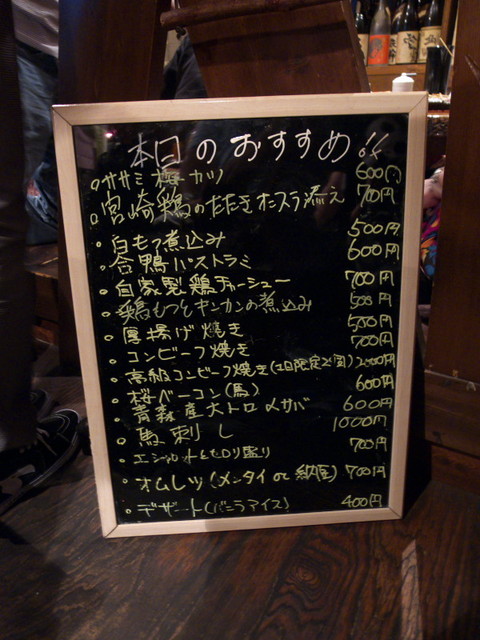 本日のおすすめ!!
ササミ梅カツ 600円
宮崎鶏のたたきオニスラ添え 700円
白もつ煮込み 500円
合鴨パストラミ 600円
自家製鶏チャーシュー 700円
鶏もつとキンカンの煮込み 500円
厚揚げ焼き 500円
コンビーフ焼き 700円
高級コンビーフ焼き(1日限定2個) 2000円
桜ベーコン(馬) 600円
青森産大トロ〆サバ 600円
馬刺し 1000円
エシャレット&セロリ盛り 700円
オムレツ(メンタイ or 納豆) 700円
デザート(バニラアイス) 400円